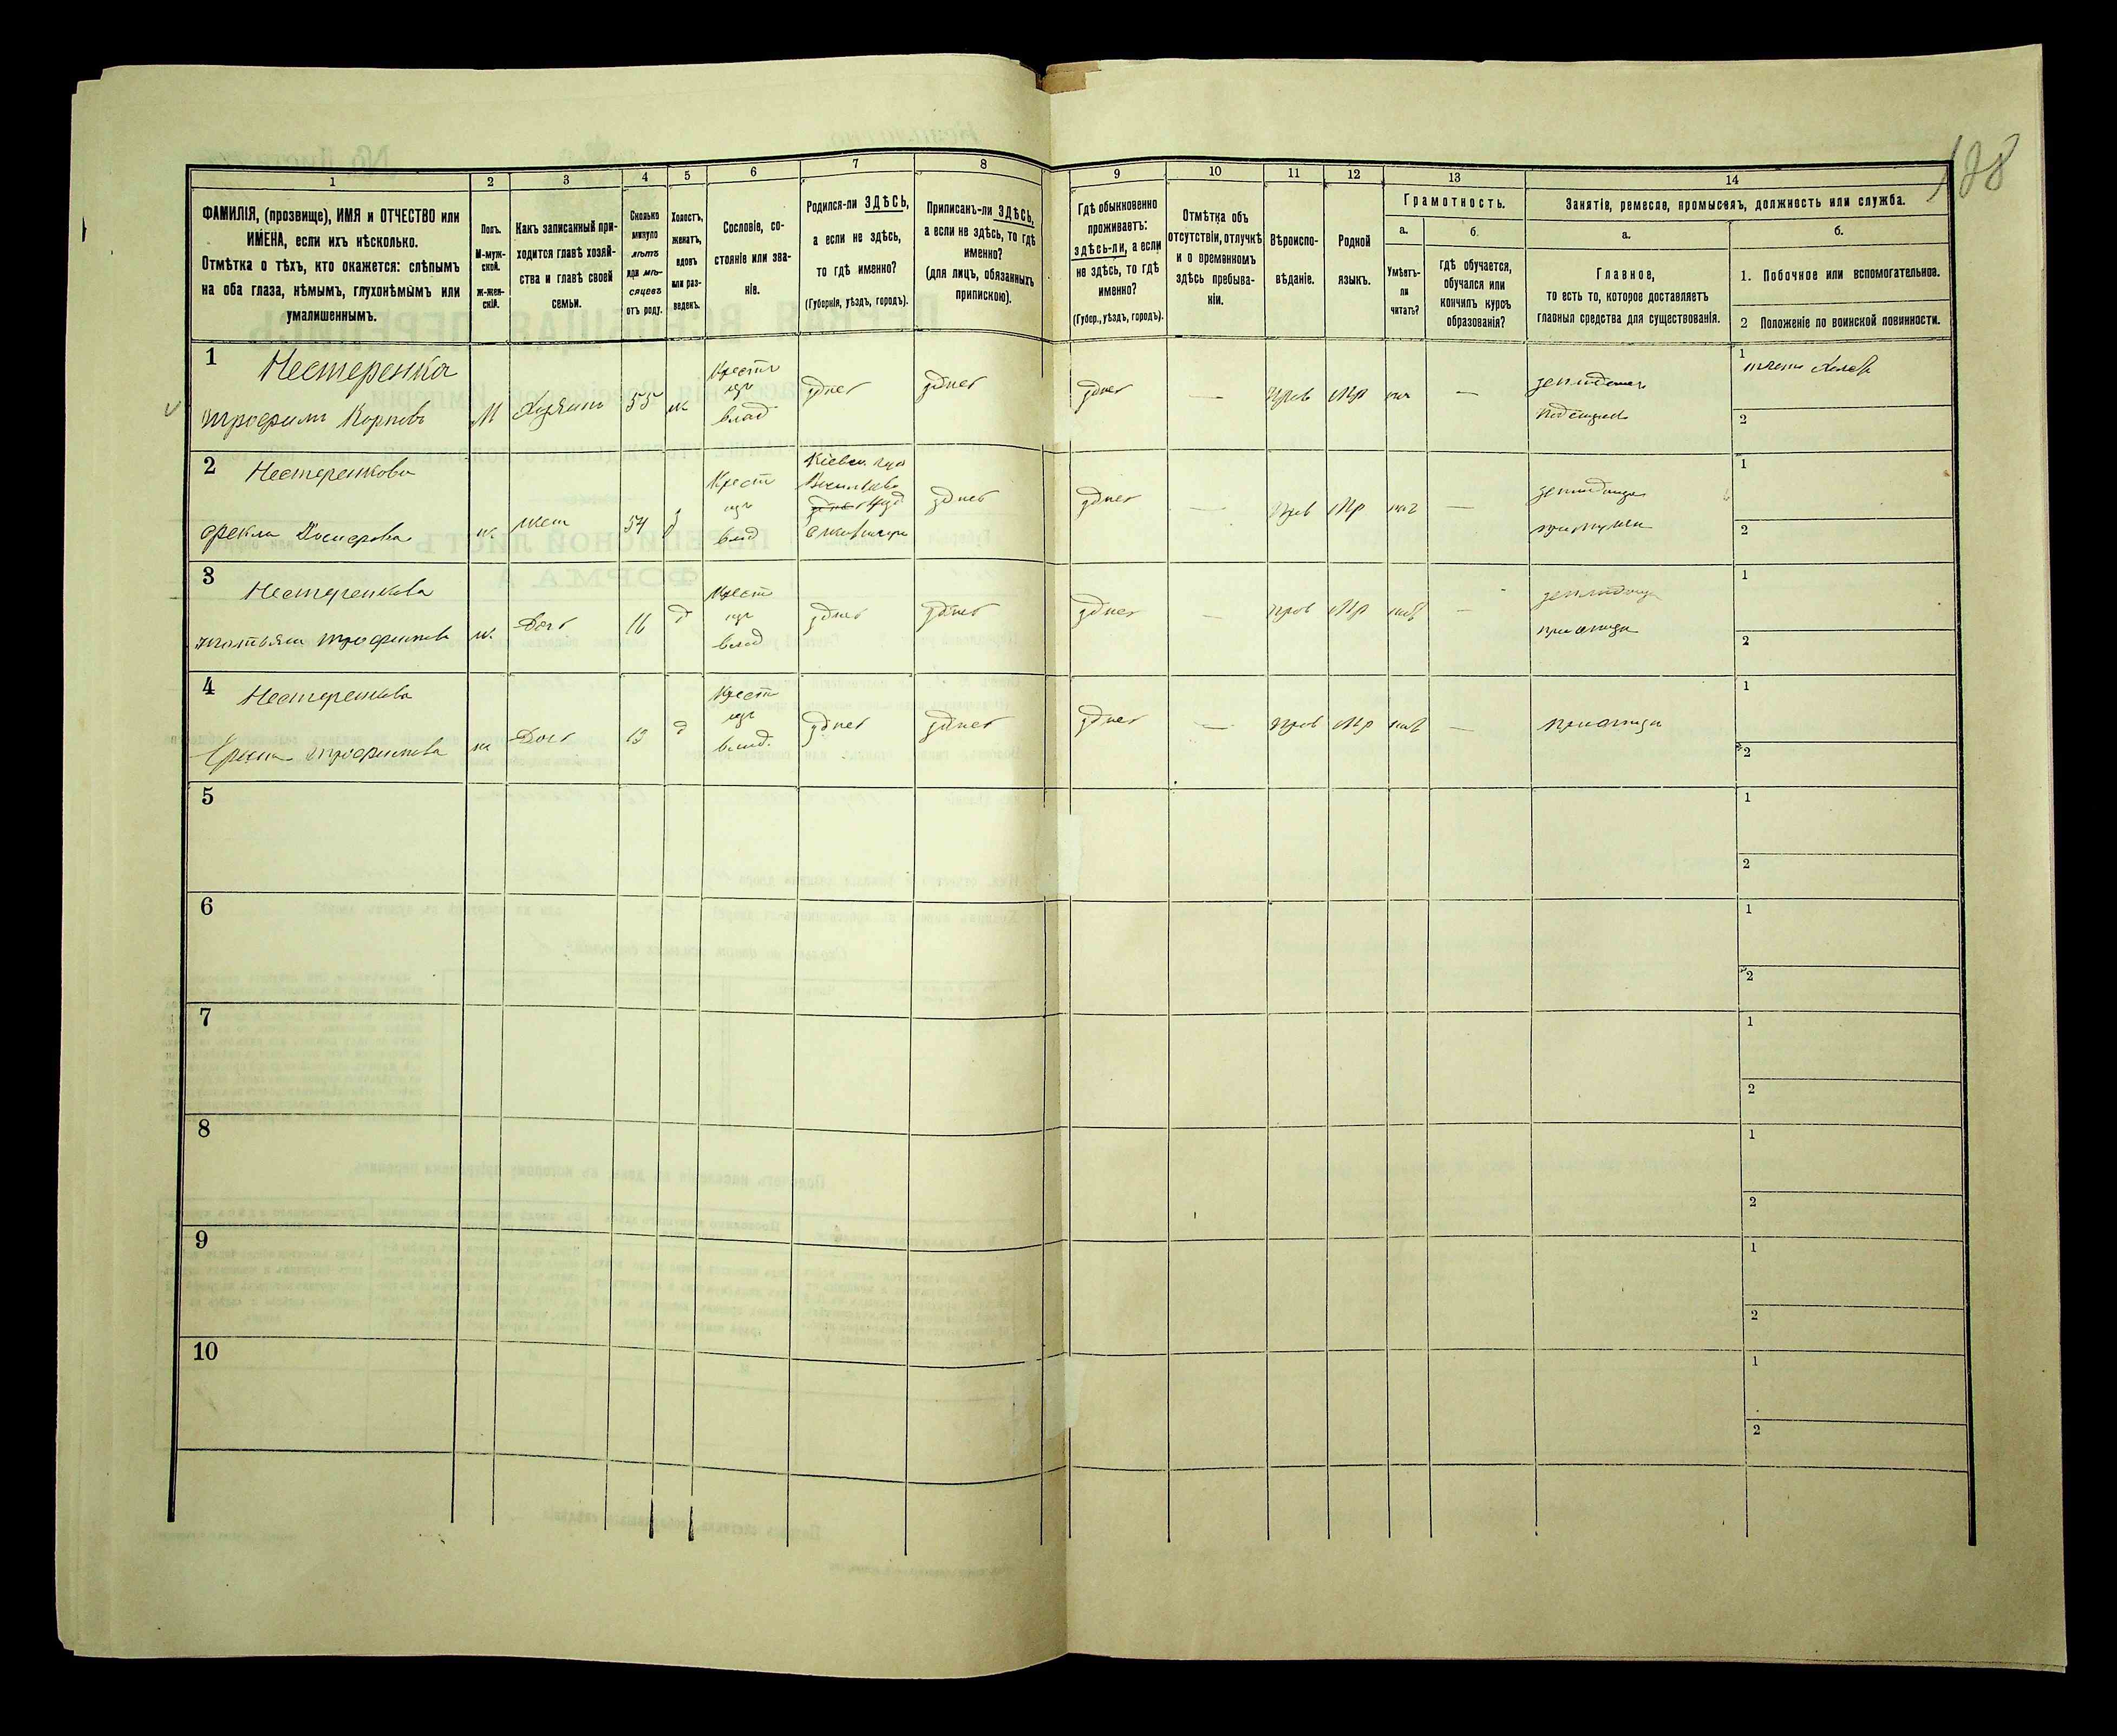 188
1
2
3
4
5
6
7
8
9
10
11
12
13
14
ФАМИЛІЯ, (прозвище), ИМЯ и ОТЧЕСТВО или
ИМЕНА, если ихъ нѣсколько.
Отмѣтка о тѣхъ, кто окажется: слѣпымъ
на оба глаза, нѣмымъ, глухонѣмымъ или
умалишеннымъ.
Полъ.
М-муж-
ской.
Ж-жен-
скій.
Какъ записанный при-
ходится главѣ хозяй-
ства и главѣ своей
семьи.
Сколько
минуло
лѣтъ
или мѣ-
сяцевъ
отъ роду.
Холостъ,
женатъ,
вдовъ
или раз-
веденъ.
Сословіе, со-
стояніе или зва-
ніе.
Родился-ли ЗДѢСЬ,
а если не здѣсь,
то гдѣ именно?
(Губернія, уѣздъ, городъ).
Приписанъ-ли ЗДѢСЬ,
а если не здѣсь, то гдѣ
именно?
(для лицъ, обязанныхъ
припискою).
Гдѣ обыкновенно
проживаетъ:
ЗДѢСЬ-ЛИ, а если
не здѣсь, то гдѣ
именно?
(Губер., уѣздъ, городъ).
Отмѣтка объ
отсутствіи, отлучкѣ
и о временномъ
здѣсь пребыва-
ніи.
Вѣроиспо-
вѣданіе.
Родной
языкъ.
Грамотность.
а.
Умѣетъ-
ли
читать?
б.
гдѣ обучается,
обучался или
кончилъ курсъ
образованія?
Занятіе, ремесло, промыселъ, должность или служба.
а.
Главное,
то есть то, которое доставляетъ
главныя средства для существованія.
б.
1. Побочное или вспомогательное.
2 Положеніе по воинской повинности.
1
Нестеренко
Трофимъ Карповъ
М
Хозяинъ
55
Крест
изъ
влад
здѣсь
здѣсь
здѣсь
—
Прав
Мр
—
1
2
2
Нестеренкова
Фекла
ж.
жена
54
Крест
изъ
влад
Кіевск. губ
здѣсь
здѣсь
—
Прав
Мр
—
1
2
3
Нестеренкова
Татьяна Трофимова
ж.
Дочь
16
д
Крест
изъ
влад
здѣсь
здѣсь
здѣсь
—
Прав
Мр
—
1
2
4
Нестеренкова
Трофимова
ж
Дочь
13
д
Крест
изъ
влад.
здѣсь
здѣсь
здѣсь
—
Прав
Мр
—
1
2
5
1
2
6
1
2
7
1
2
8
1
2
9
1
2
10
1
2